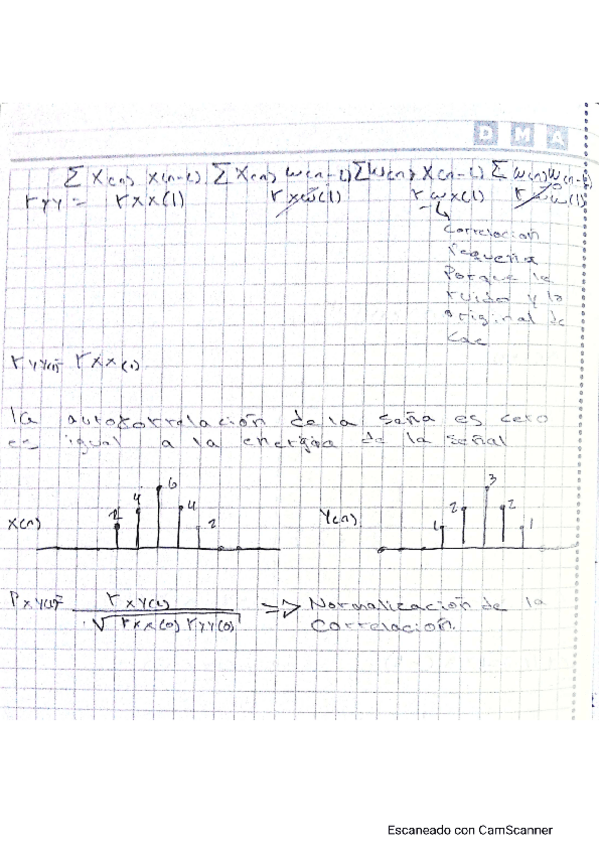 D M A
Σ x(n) x(n-l) Σ x(n) w(n-l) Σ w(n) x(n-l) Σ w(n) w(n-l)
ryy = rxx(l) rxw(l) rwx(l) rww(l)
Correlacion
Pequeña
Porque la
ruido y la
original de
cae
ryy(l)= rxx(l)
la autocorrelación de la seña es cero
es igual a la energia de la señal
x(n) 2 4 6 4 2
Y(n) 1 2 3 2 1
Pxy(l)= rxy(l) / √rxx(0) ryy(0) => Normalización de la
Correlación.
Escaneado con CamScanner